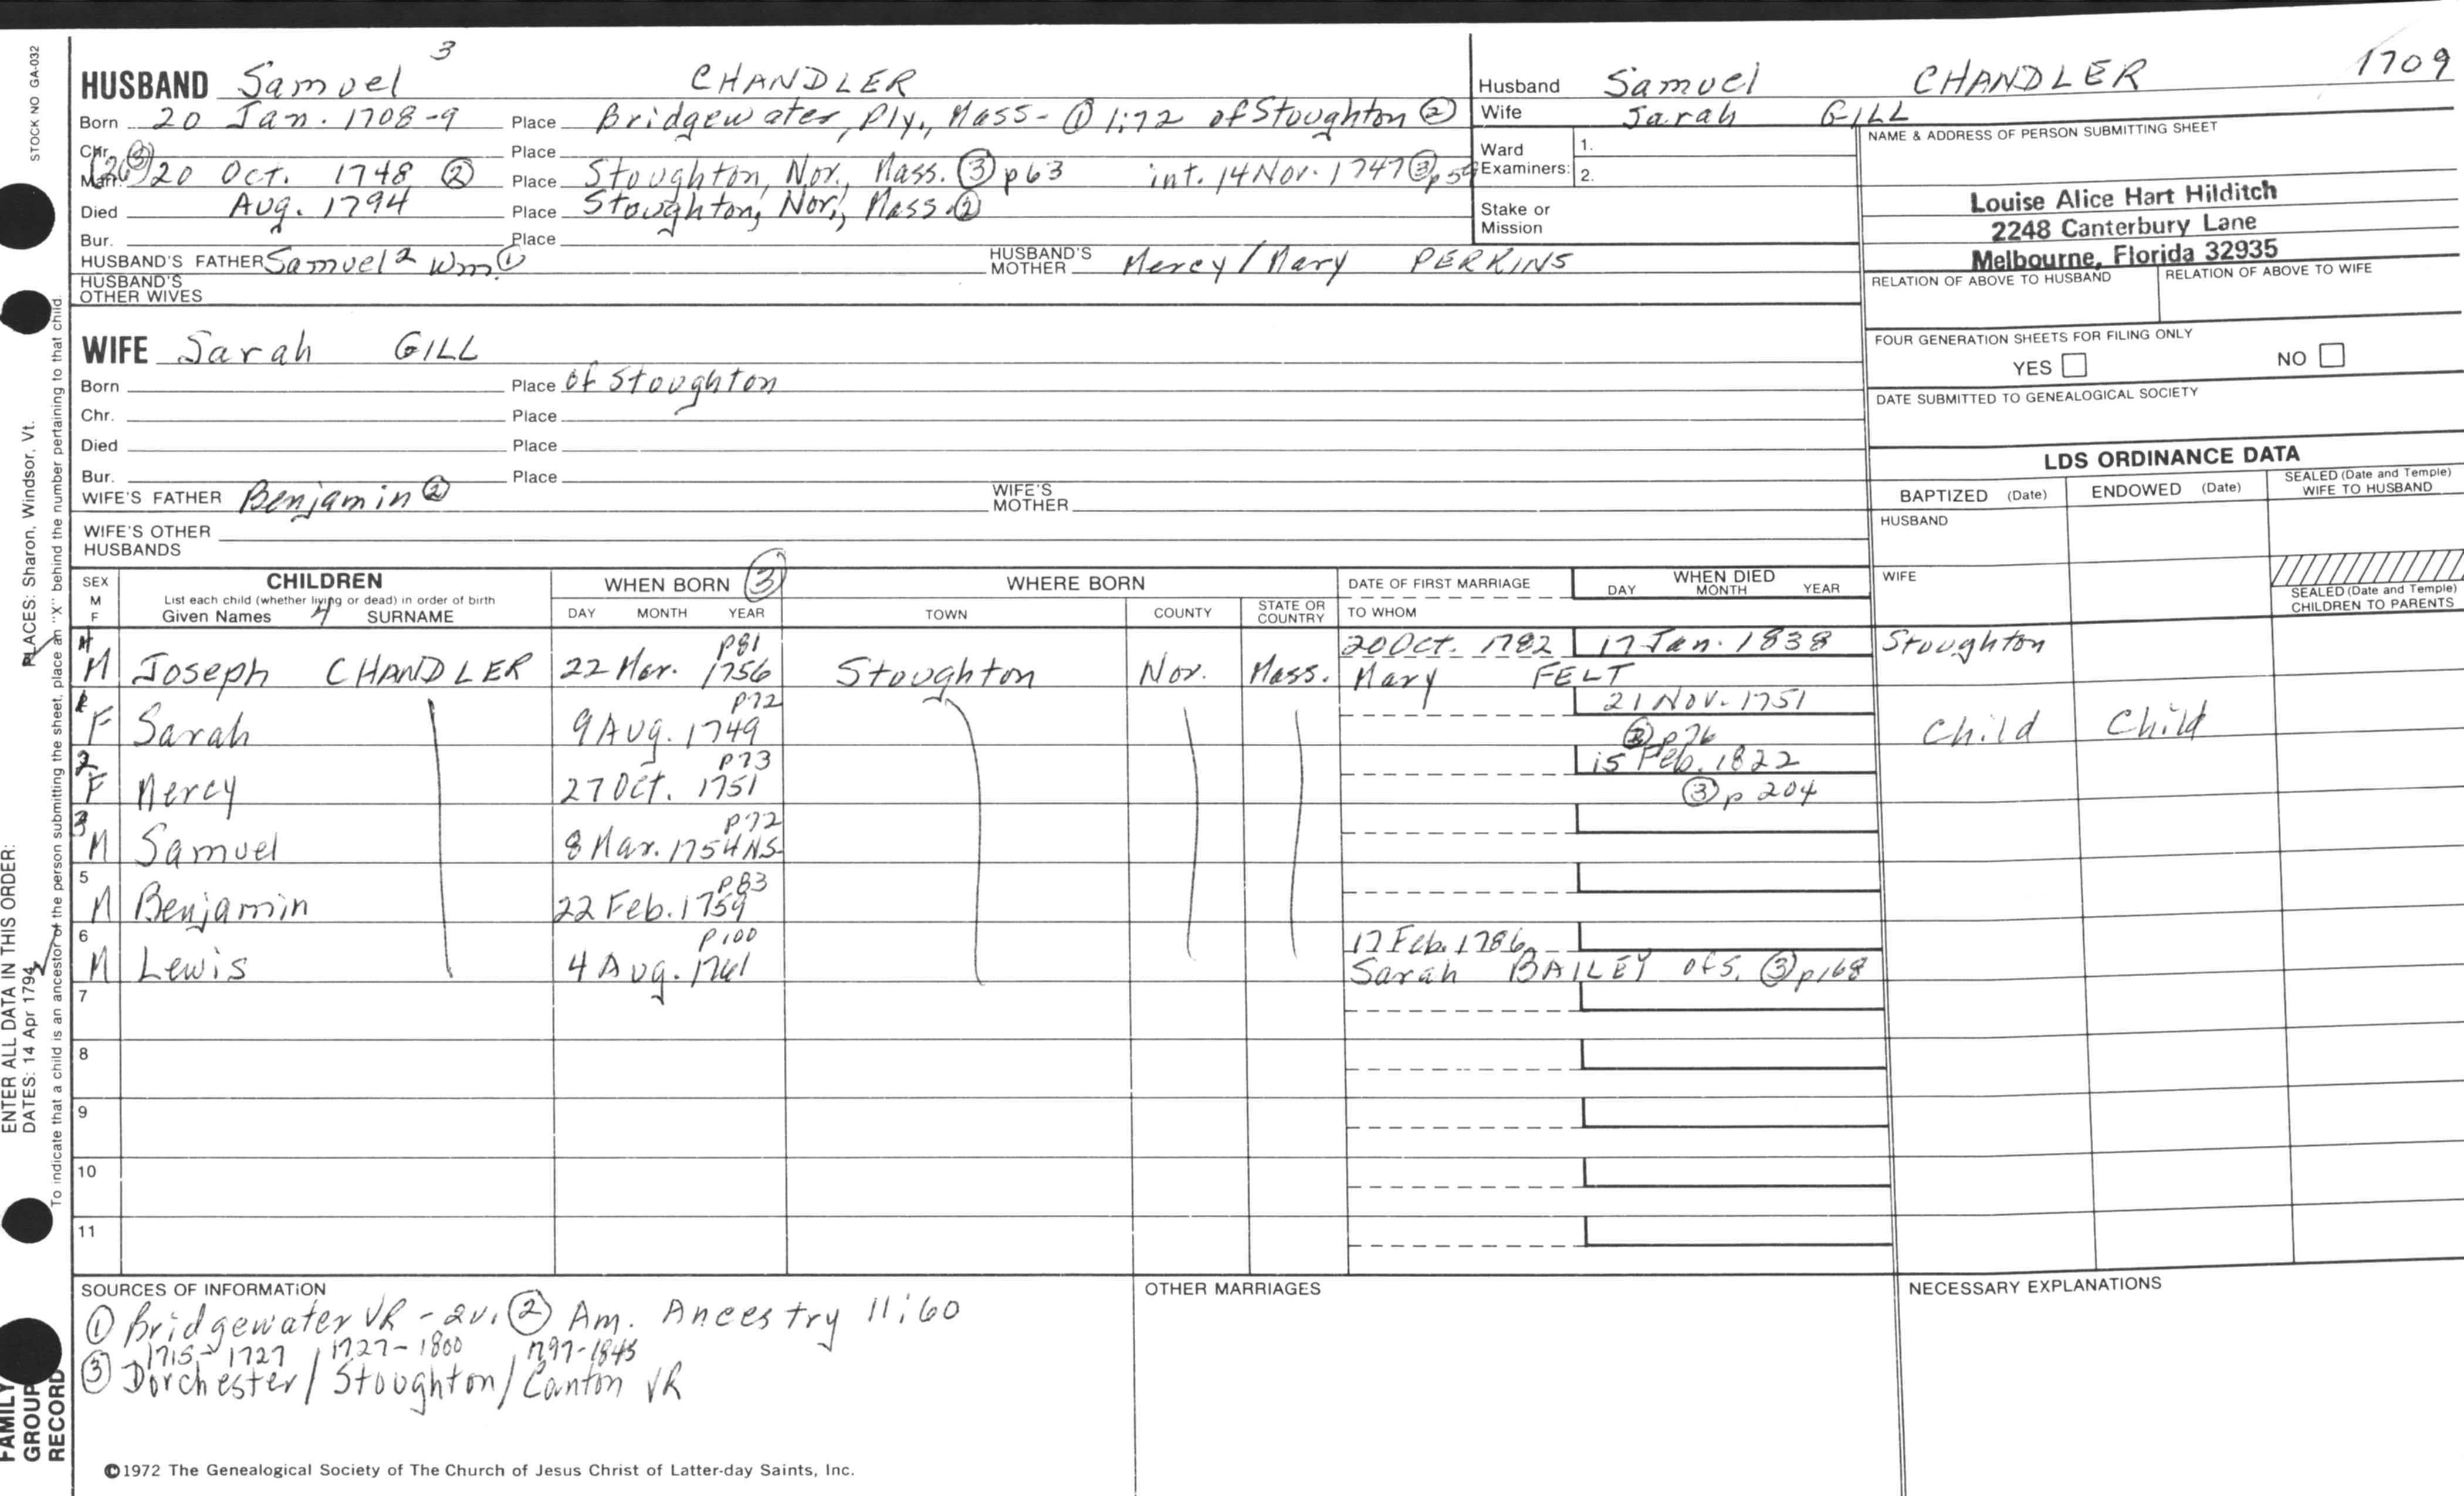 STOCK NO GA-032
3
HUSBAND Samuel CHANDLER
Born 20 Jan. 1708-9 Place Bridgewater, Ply., Mass - ① 1:72 of Stoughton ②
Chr. Place
Marr. (26③) 20 Oct. 1748 ② Place Stoughton, Nor., Mass. ③ p63 int. 14 Nov. 1747 ③ p59
Died Aug. 1794 Place Stoughton, Nor., Mass. ②
Bur. Place
HUSBAND'S FATHER Samuel 2 Wm ① HUSBAND'S MOTHER Mercy / Mary PERKINS
HUSBAND'S OTHER WIVES
WIFE Sarah GILL
Born Place of Stoughton
Chr. Place
Died Place
Bur. Place
WIFE'S FATHER Benjamin ② WIFE'S MOTHER
WIFE'S OTHER HUSBANDS
Husband Samuel CHANDLER 1709
Wife Sarah GILL
Ward Examiners: 1.
2.
Stake or Mission
NAME & ADDRESS OF PERSON SUBMITTING SHEET
Louise Alice Hart Hilditch
2248 Canterbury Lane
Melbourne, Florida 32935
RELATION OF ABOVE TO HUSBAND RELATION OF ABOVE TO WIFE
FOUR GENERATION SHEETS FOR FILING ONLY
YES NO
DATE SUBMITTED TO GENEALOGICAL SOCIETY
LDS ORDINANCE DATA
BAPTIZED (Date) ENDOWED (Date) SEALED (Date and Temple) WIFE TO HUSBAND
HUSBAND
WIFE
SEALED (Date and Temple) CHILDREN TO PARENTS
SEX M F CHILDREN WHEN BORN ③ WHERE BORN DATE OF FIRST MARRIAGE WHEN DIED
List each child (whether living or dead) in order of birth
Given Names 4 SURNAME DAY MONTH YEAR TOWN COUNTY STATE OR COUNTRY TO WHOM DAY MONTH YEAR
4 p81 20 Oct. 1782 17 Jan. 1838 Stoughton
M Joseph CHANDLER 22 Mar. 1756 Stoughton Nor. Mass. Mary FELT
p72 21 Nov. 1751
F Sarah 9 Aug. 1749 ③ p76 Child Child
2 p73 15 Feb. 1822
F Mercy 27 Oct. 1751 ③ p 204
3 p72
M Samuel 8 Mar. 1754 NS
5 p83
M Benjamin 22 Feb. 1759
6 p100 17 Feb. 1786
M Lewis 4 Aug. 1761 Sarah BAILEY of S. ③ p168
7
8
9
10
11
SOURCES OF INFORMATION OTHER MARRIAGES NECESSARY EXPLANATIONS
① Bridgewater VR - 2v. ② Am. Ancestry 11:60
1715-1727 1727-1800 1797-1845
③ Dorchester / Stoughton / Canton VR
©1972 The Genealogical Society of The Church of Jesus Christ of Latter-day Saints, Inc.
ENTER ALL DATA IN THIS ORDER:
DATES: 14 Apr 1794
PLACES: Sharon, Windsor, Vt.
To indicate that a child is an ancestor of the person submitting the sheet, place an "X" behind the number pertaining to that child.
FAMILY
GROUP
RECORD